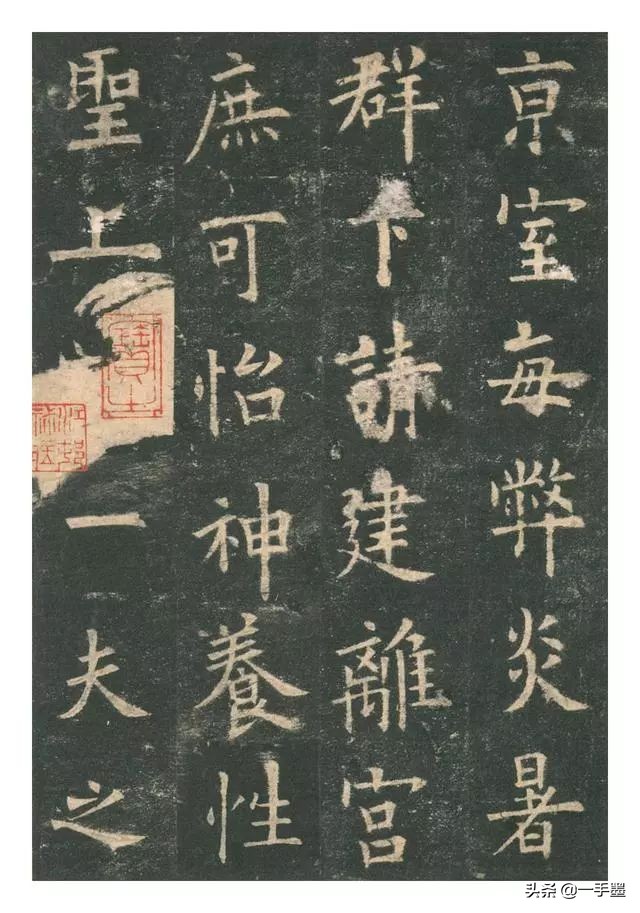 京室每弊炎暑
群下請建離宮
庶可怡神養性
聖上
一夫之
頭条@一手墨